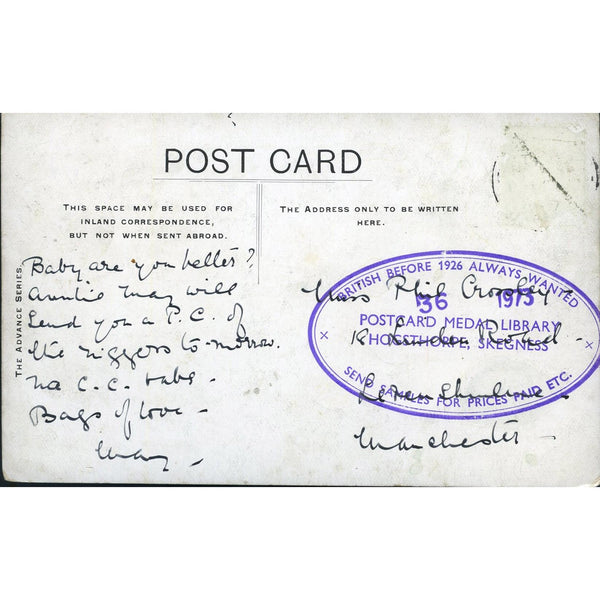 POST CARD
THIS SPACE MAY BE USED FOR
INLAND CORRESPONDENCE,
BUT NOT WHEN SENT ABROAD.
THE ADDRESS ONLY TO BE WRITTEN
HERE.
THE ADVANCE SERIES.
Baby are you better?
Auntie May will
send you a P.C. of
the niggers to-morrow.
na C.C.
Bags of love -
May -
Miss Phil Crossley
18 Linden Road -
Levenshulme -
Manchester -
BRITISH BEFORE 1926 ALWAYS WANTED
36 1973
POSTCARD MEDAL LIBRARY
HOGSTHORPE, SKEGNESS
SEND SAMPLES FOR PRICES PAID ETC.